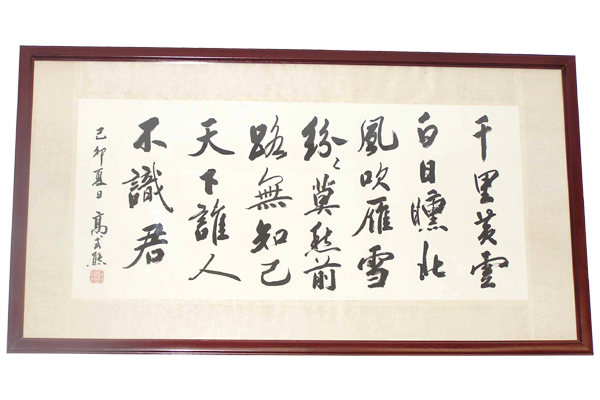 千里黄雲
白日曛北
風吹雁雪
紛々莫愁前
路無知己
天下誰人
不識君
己卯夏日 高式熊